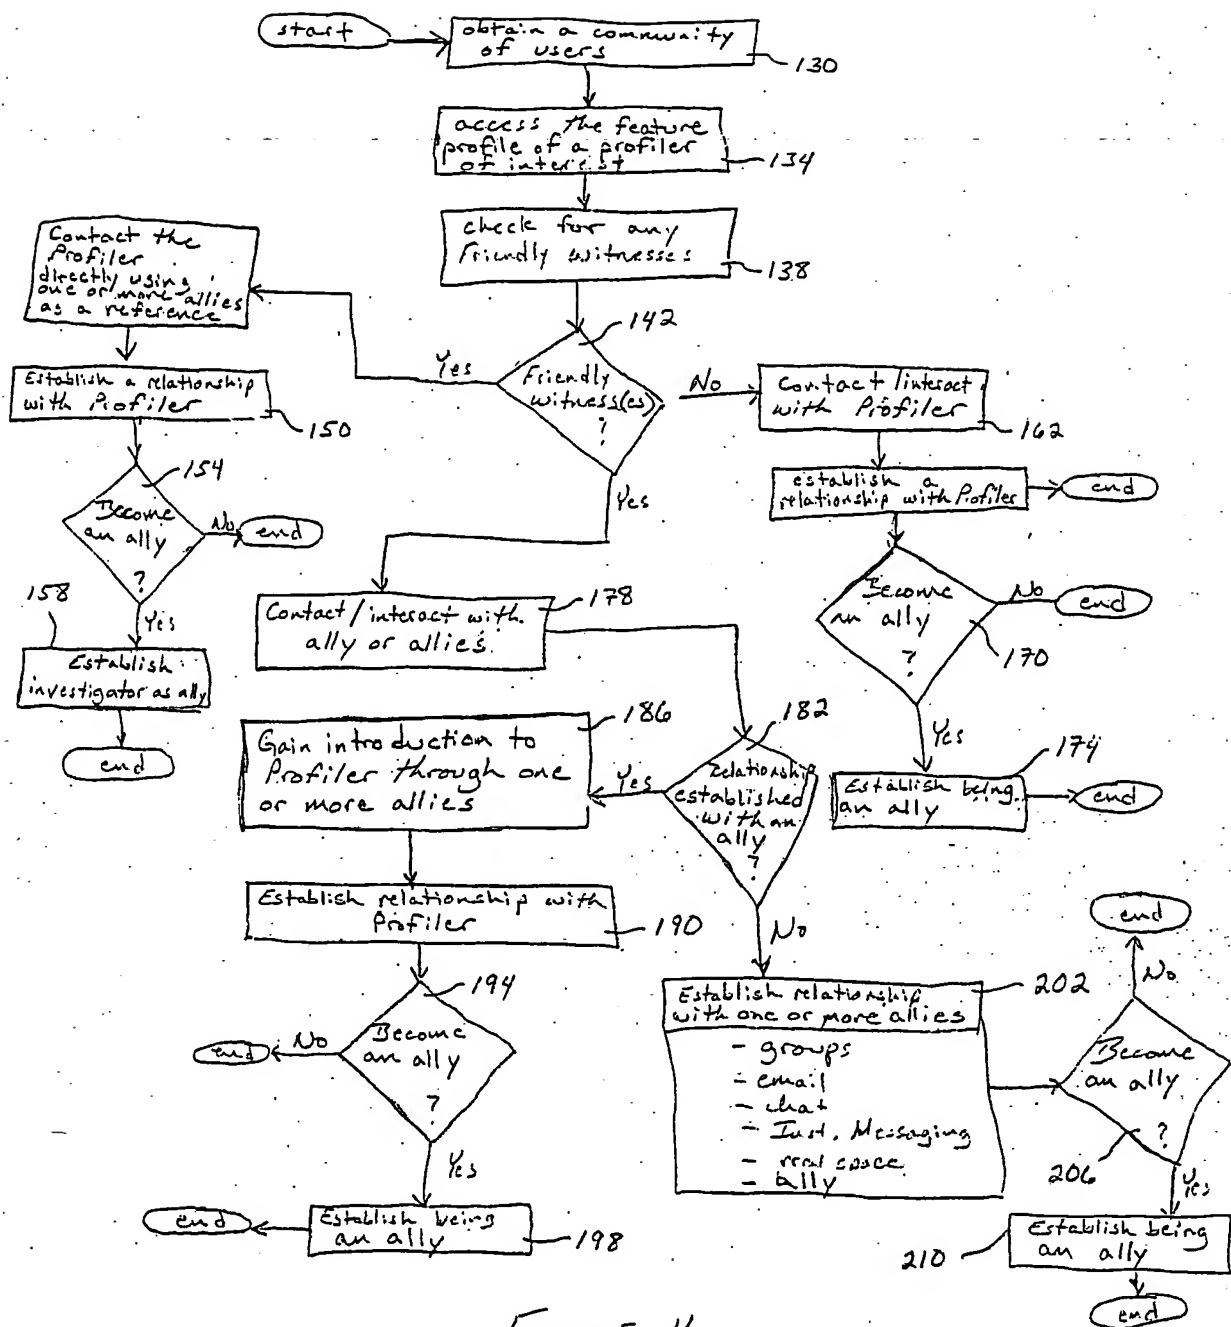 start
obtain a community
of users
130
access the feature
profile of a profiler
of interest
134
check for any
Friendly witnesses
138
142
Friendly
witness(es)
?
Yes
No
Yes
Contact the
Profiler
directly using
one or more allies
as a reference
Establish a relationship
with Profiler
150
154
Become
an ally
?
No
end
Yes
158
Establish
investigator as ally
end
Contact/interact
with Profiler
162
establish a
relationship with Profiler
end
Become
an ally
?
170
No
end
Yes
174
Establish being
an ally
end
Contact/interact with
ally or allies
178
182
Relationship
established
with an
ally
?
Yes
No
186
Gain introduction to
Profiler through one
or more allies
Establish relationship with
Profiler
190
194
Become
an ally
?
No
end
Yes
Establish being
an ally
198
end
202
Establish relationship
with one or more allies
- groups
- email
- chat
- Inst. Messaging
- real space
- ally
Become
an ally
?
206
No
end
Yes
210
Establish being
an ally
end